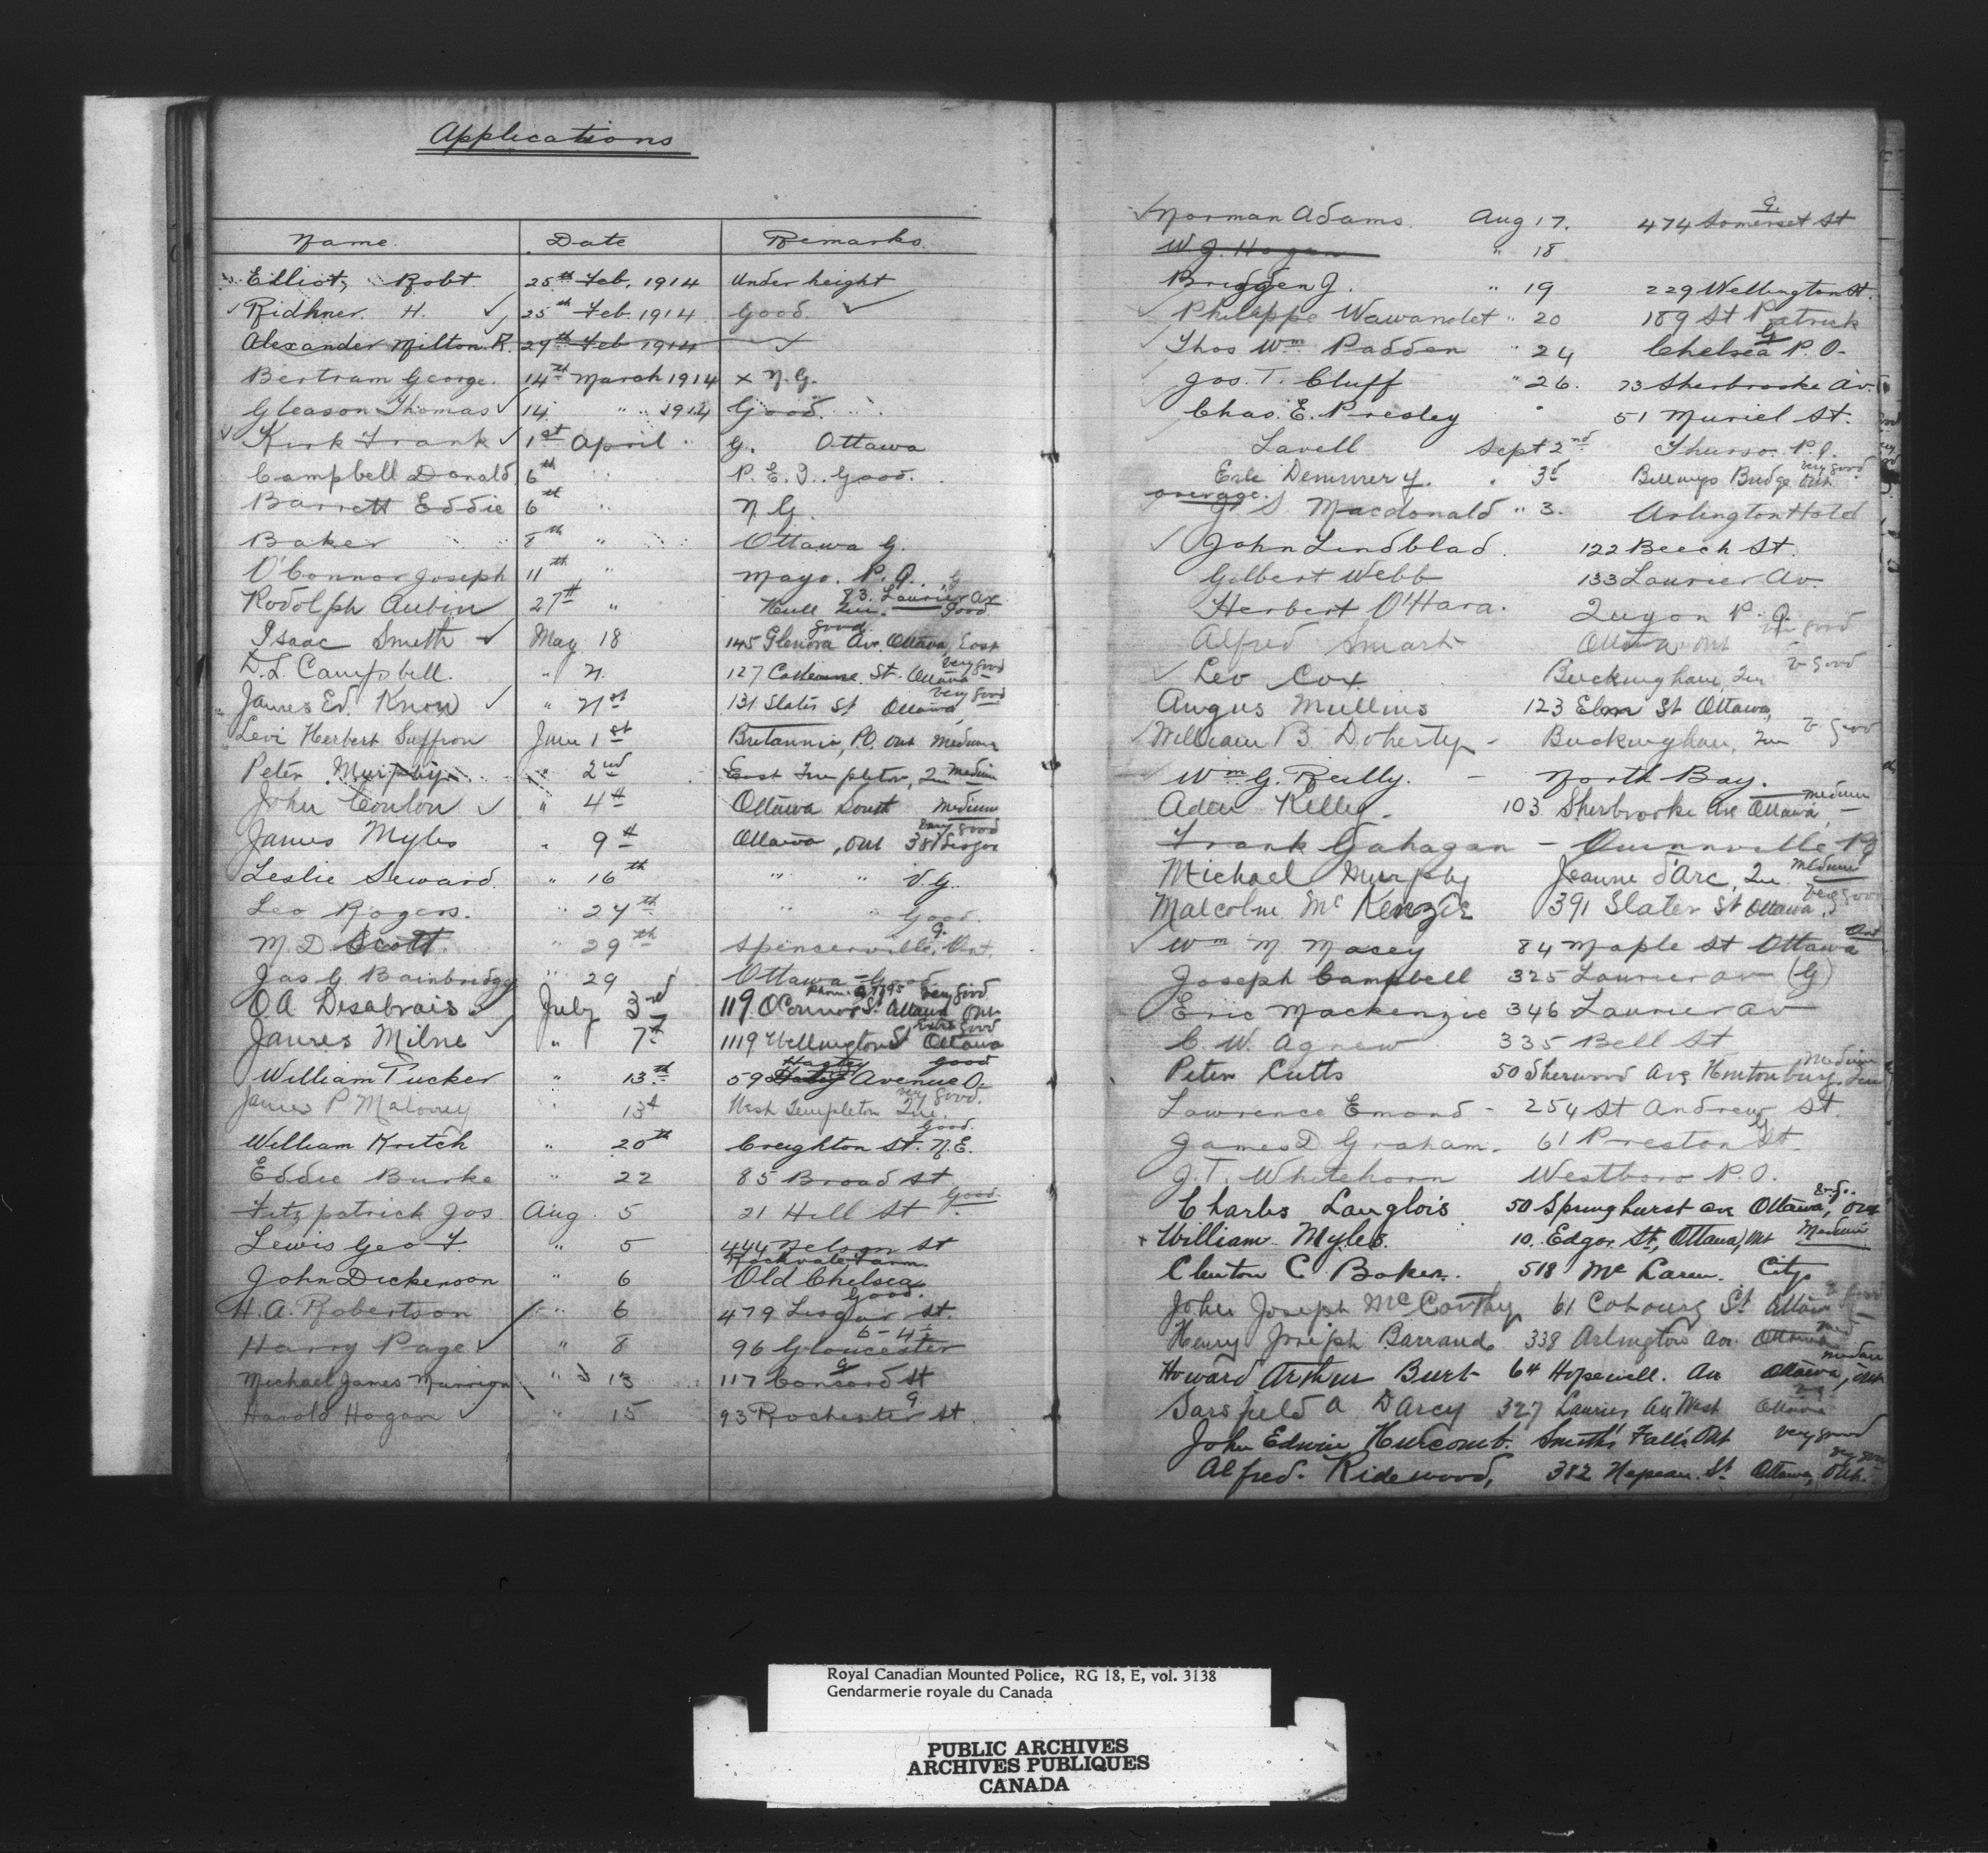 Applications
Name. Date Remarks.
Elliot, Robt. 25th Feb. 1914 Under height
Ridhner. H. ✓ 25th Feb. 1914 Good. ✓
Alexander Milton R. 29th Feb 1914 ✓
Bertram George. 14th March 1914 x N.G.
Gleason Thomas ✓ 14 " " 1914 Good.
Kirk Frank ✓ 1st April " G. Ottawa
Campbell Donald 6th " P.E.I. Good.
Barrett Eddie 6th " N.G.
Baker 8th " Ottawa G.
O'Connor Joseph 11th " Mayo. P.Q. G
Rodolph Aubin 27th " Hull Que. 83. Laurier Av Good
Isaac Smith ✓ May 18 145 Glenora Av. Ottawa, East good
D.L. Campbell. " 127 Catherine St. Ottawa very good
James Ed. Know ✓ " 21st 131 Slater St Ottawa, very good
Levi Herbert Suffron June 1st Britannia, P.O. Ont Medium
Peter Murphy " 2nd East Templeton, Que Medium
John Conlon ✓ " 4th Ottawa South Medium
James Myles " 9th Ottawa, Ont 381 Lisgar very good
Leslie Seward. " 16th " " V.G.
Leo Rogers. " 24th " " Good.
M.D Scott. " 29th Spencerville, Ont. G.
Jas G Bainbridge " 29 Ottawa - Good
O.A. Desabrais ✓ July 3rd 119 O'Connor St Ottawa Ont very good
James Milne ✓ " 7th 1119 Wellington St Ottawa Extra Good
William Tucker " 13th 59 Hawley Avenue O. good
James P Maloney " 13th West Templeton Que. very good.
William Kritch " 20th Creighton St. N.E. Good.
Eddie Burke " 22 85 Broad St
Fitzpatrick Jos Aug. 5 21 Hill St. Good
Lewis Geo F. " 5 444 Nelson St
John Dickenson " 6 Rockvale Farm Old Chelsea
H.A. Robertson " 6 479 Lisgar St. Good.
Harry Page ✓ " 8 96 Gloucester 6-4½
Michael James " 13 117 Concord St G
Harold Hogan ✓ " 15 93 Rochester St G
✓ Norman Adams. Aug 17. 474 Somerset St G.
W.J. Hogan " 18
Bridgen J. " 19 229 Wellington St.
✓ Philippe " 20 189 St Patrick
✓ Thos Wm Padden " 24 Chelsea P.O.
Jos. T. Cluff " 26. 73 Sherbrooke Av.
✓ Chas. E. Presley " 51 Muriel St.
Lavell Sept 2nd Thurso. P.Q.
Erle Demmery. " 3d Billings Bridge Ont very good
average. J.S. Macdonald " 3. Arlington Hotel
✓ John Lindblad. 122 Beech St.
Gilbert Webb 133 Laurier Av.
Herbert O'Hara. Quyon P.Q.
Alfred Smart Ottawa Ont v. good
✓ Leo Cox Buckingham, Que v good
Angus Mullins 123 Elm St Ottawa,
✓ William B. Doherty - Buckingham, Que v good
✓ Wm G. Reilly. - North Bay.
Aden Kelley. 103 Sherbrooke Ave Ottawa, medium
Frank Gahagan - Quinnville PQ
Michael Murphy Jeanne d'Arc, Que. Medium
Malcolm McKenzie 391 Slater St Ottawa, very good
✓ Wm M Macey 84 Maple St Ottawa Ont
Joseph Campbell 325 Laurier av (G)
Eric Mackenzie 346 Laurier av
C.W. Agnew 335 Bell St
Peter Cutts 50 Sherwood Ave Hintonburg, Medium
Lawrence Emond - 254 St Andrew St.
James D Graham. 61 Preston St. G
J.T. Whitehorn Westboro P.O.
Charles Langlois 50 Springhurst ave Ottawa, Ont
+ William Myles. 10. Edgar St, Ottawa, Ont Medium
Clinton C Baker. 518 McLaren. City
John Joseph McCarthy 61 Cobourg St Ottawa
Henry Joseph Barrand. 338 Arlington Ave. Ottawa med
Howard Arthur Burt 64 Hopewell. Av Ottawa, Ont medium
Sarsfield A DArcy 327 Laurier Av West Ottawa v g
John Edwin Hurcomb. Smith's Falls Ont very good
Alfred. Ridewood, 382 Nepean. St Ottawa, Ont. very good
Royal Canadian Mounted Police, RG 18, E, vol. 3138
Gendarmerie royale du Canada
PUBLIC ARCHIVES
ARCHIVES PUBLIQUES
CANADA